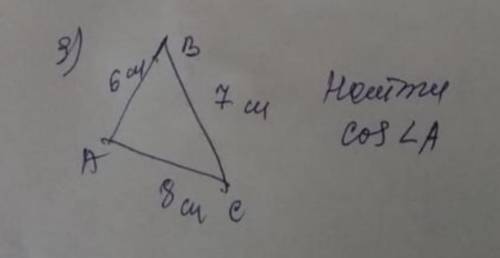 3)
B
6 см
7 см
A
8 см
C
Найти
cos ∠A